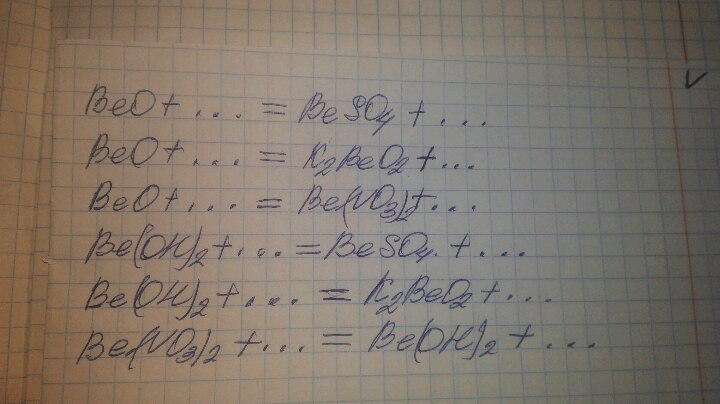 BeO + ... = BeSO4 + ...
BeO + ... = K2BeO2 + ...
BeO + ... = Be(NO3)2 + ...
Be(OH)2 + ... = BeSO4 + ...
Be(OH)2 + ... = K2BeO2 + ...
Be(NO3)2 + ... = Be(OH)2 + ...